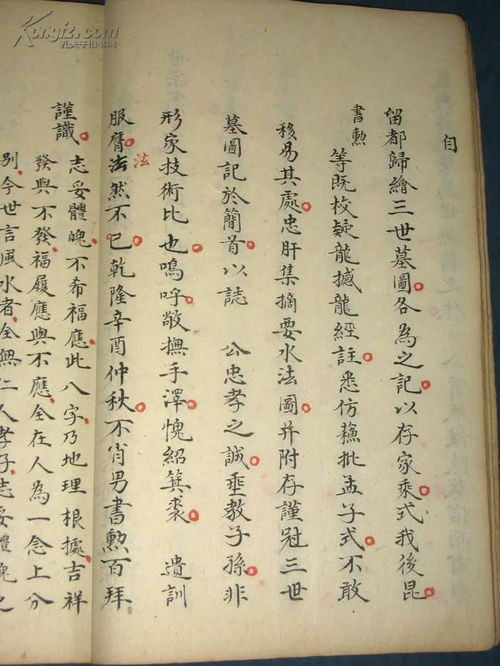 自
留都歸繪三世墓圖各為之記以存家乘式我後昆
書勲
等既校疑龍撼龍經註悉仿蘓批孟子式不敢
移易其處忠肝集摘要水法圖并附存謹冠三世
墓圖記於簡首以誌 公忠孝之誠垂教子孫非
形家技術比也嗚呼敬撫手澤愧紹箕裘 遺訓
服膺法然不已乾隆辛酉仲秋不肖男書勲百拜
法
謹識 志妥體魄不希福應此八字乃地理根據吉祥
發與不發福履應與不應全在人為一念上分
別今世言風水者全無仁人孝子志妥體魄之
Kongfz.com
孔夫子旧书网